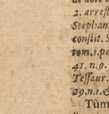 2. arrest
Stephan
consist. S
tom. 1. pa
41. n. 9.
Tessaur.
29. n. 1. &
Tùm